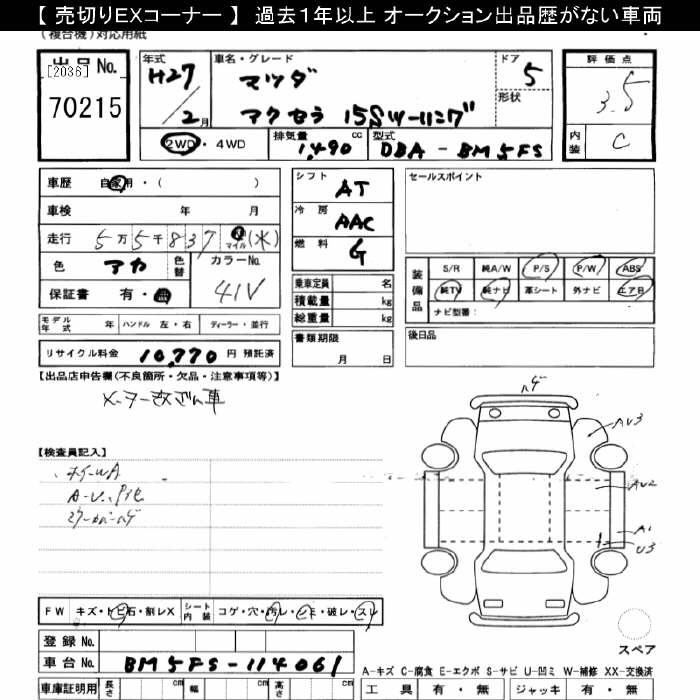 【 売切りEXコーナー 】 過去1年以上 オークション出品歴がない車両
(複合機)対応用紙
出品 No.
[2036]
70215
年式
H27
/ 2月
車名・グレード
マツダ
アクセラ 15S
ドア
5
形状
評価点
3.5
内装
C
2WD・4WD
排気量
1,490
cc
型式
DBA - BM5FS
車歴 自家用・( )
車検 年 月
走行 5万5千837
マイル
色 アカ
色替
カラーNo.
41V
保証書 有・無
シフト
AT
冷房
AAC
燃料
G
乗車定員 名
積載量 kg
総重量 kg
セールスポイント
装備品
S/R 純A/W P/S P/W ABS
純TV 純ナビ 革シート 外ナビ エアB
ナビ型番:
モデル年式 年 ハンドル 左・右 ディーラー・並行
書類期限
月 日
後日品
リサイクル料金 10,770 円 預託済
【出品店申告欄(不良箇所・欠品・注意事項等)】
メーター改ざん車
【検査員記入】
AU3
AU2
A1
U3
FW キズ・トビ石・割レX
シート内装
コゲ・穴・汚レ・破レ・スレ
登録 No.
車台 No. BM5FS-114061
スペア
A-キズ C-腐食 E-エクボ S-サビ U-凹ミ W-補修 XX-交換済
車庫証明用 長さ cm 幅 cm 高さ cm
工具 有・無 ジャッキ 有・無